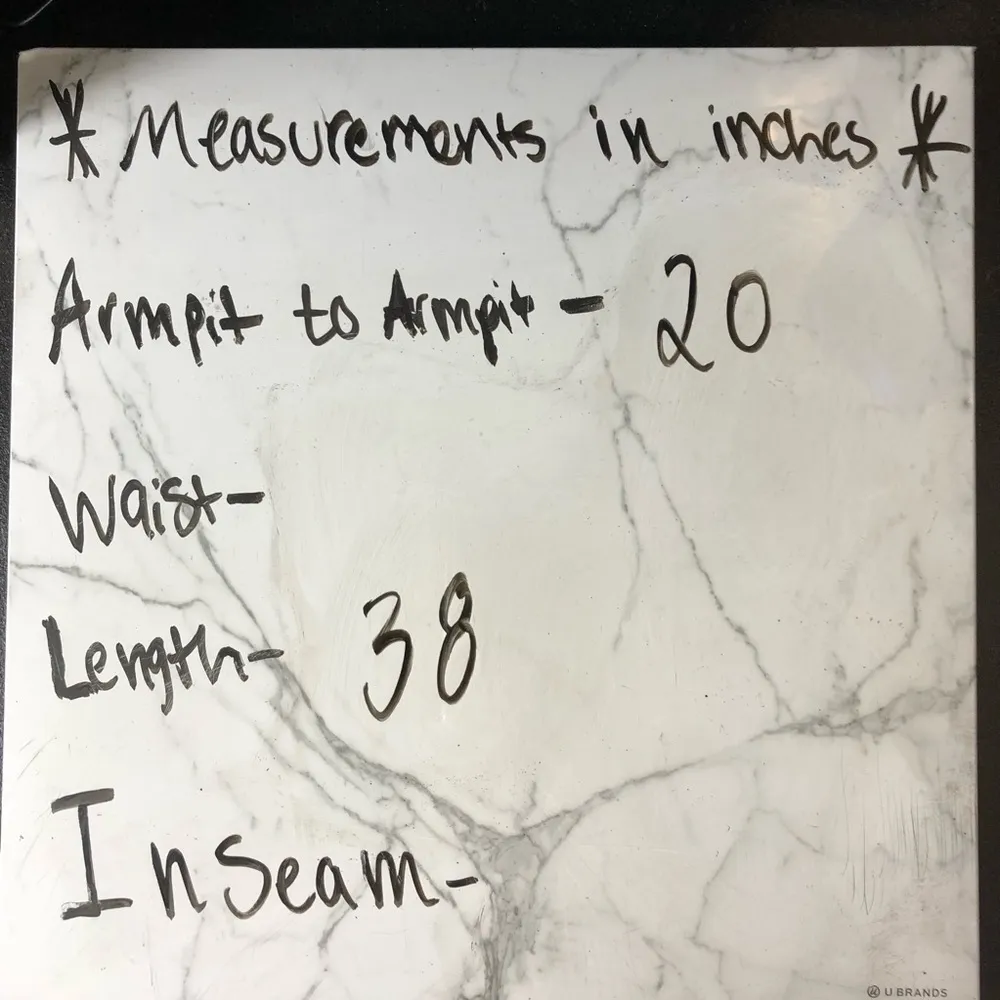 * Measurements in inches *
Armpit to Armpit - 20
Waist-
Length- 38
Inseam-
U BRANDS